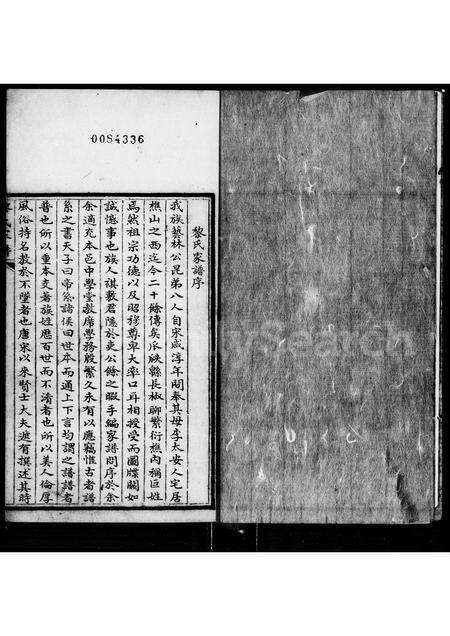 0084336
黎氏家譜序
我族藝林公昆弟八人自宋咸淳年間奉其母李太安人宅居
樵山之西迄今二十餘傳矣瓜瓞縣長椒聊繁衍樵內稱巨姓
焉然祖宗功德以及昭穆尊卑大率口耳相授受而圖牒闕如
誠憾事也族人祺數君隱於吏公餘之暇手編家譜問序於余
余適充本邑中學堂教席學務殷繁久未有以應竊惟古者譜
系之書天子曰帝系諸侯曰世本而通上下言均謂之譜譜者
普也所以重本支著族姓歷百世而不淆者也所以美人倫厚
風俗持名教於不墜者也唐宋以來賢士大夫遞有撰述其時